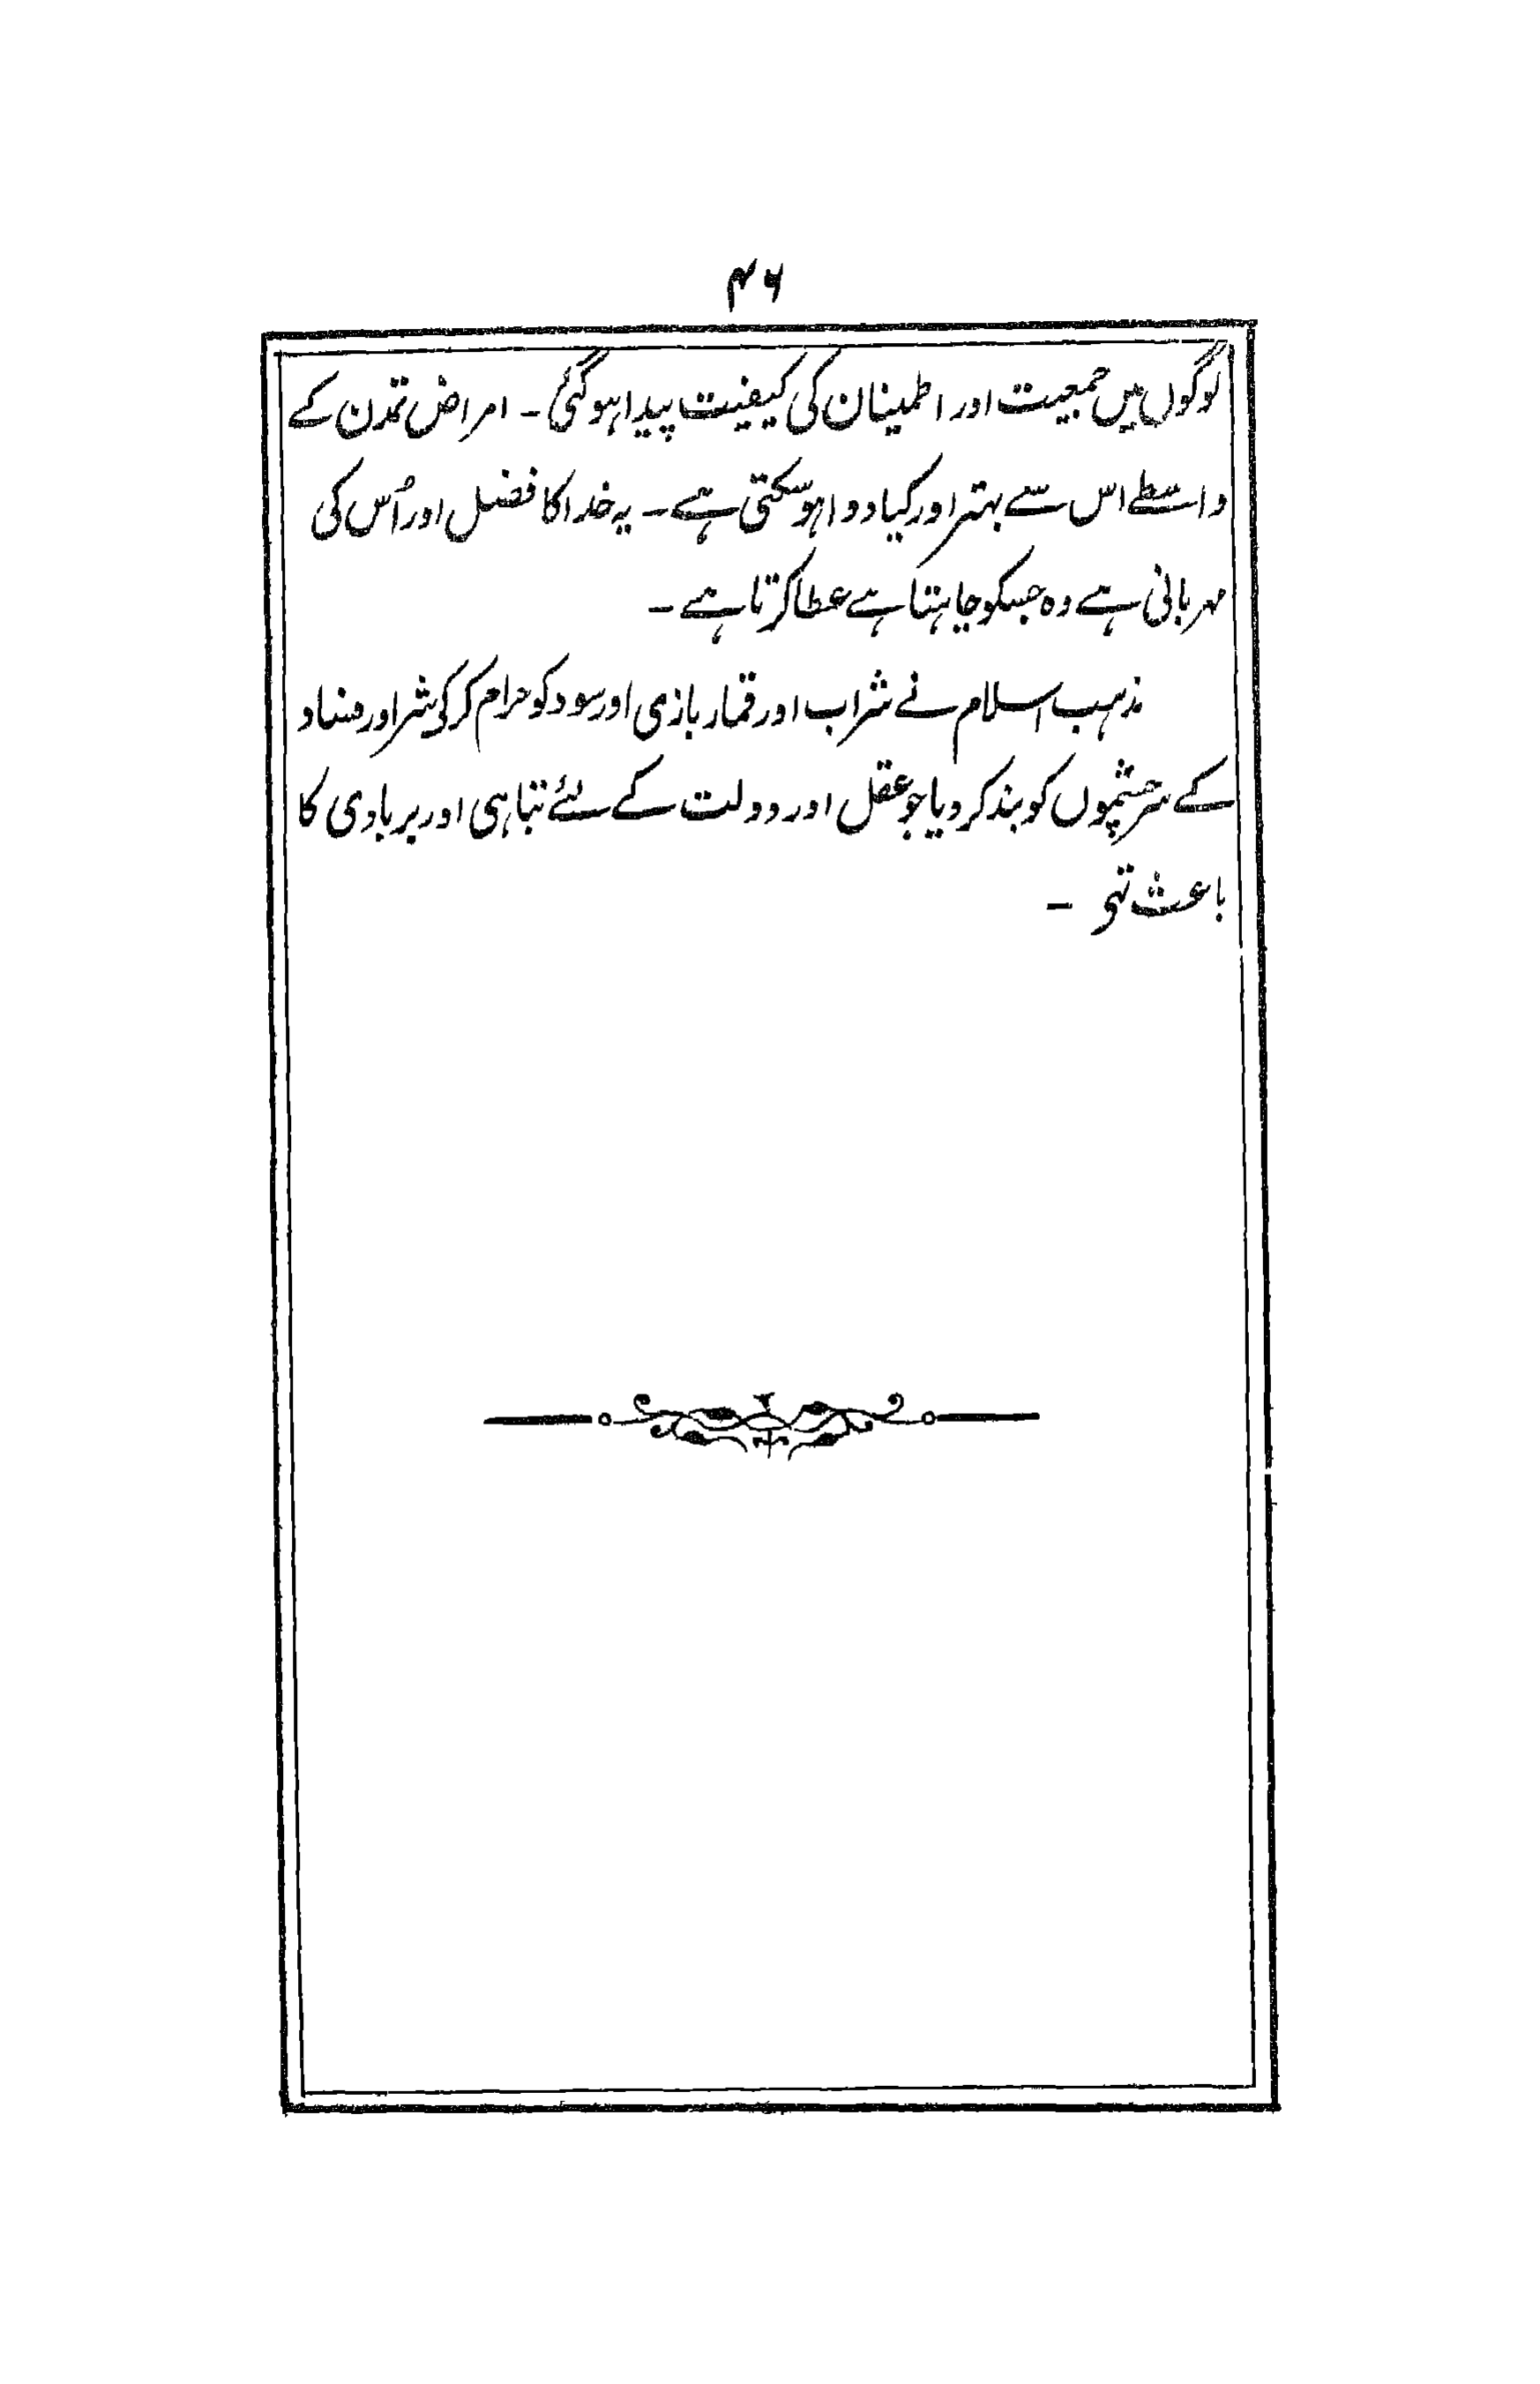 ۴۶
لوگوں میں جمعیت اور اطمینان کی کیفیت پیدا ہوگئی ۔ امراض تمدن کے
واسطے اس سے بہتر اور کیا دوا ہوسکتی ہے ۔ یہ خدا کا فضل اور اُس کی
مہربانی ہے وہ جسکو چاہتا ہے عطا کرتا ہے ۔
مذہب اسلام نے شراب اور قمار بازی اور سود کو حرام کر کی شر اور فساد
کے سرچشموں کو بند کر دیا جو عقل اور دولت کے لئے تباہی اور بربادی کا
باعث تہی ۔